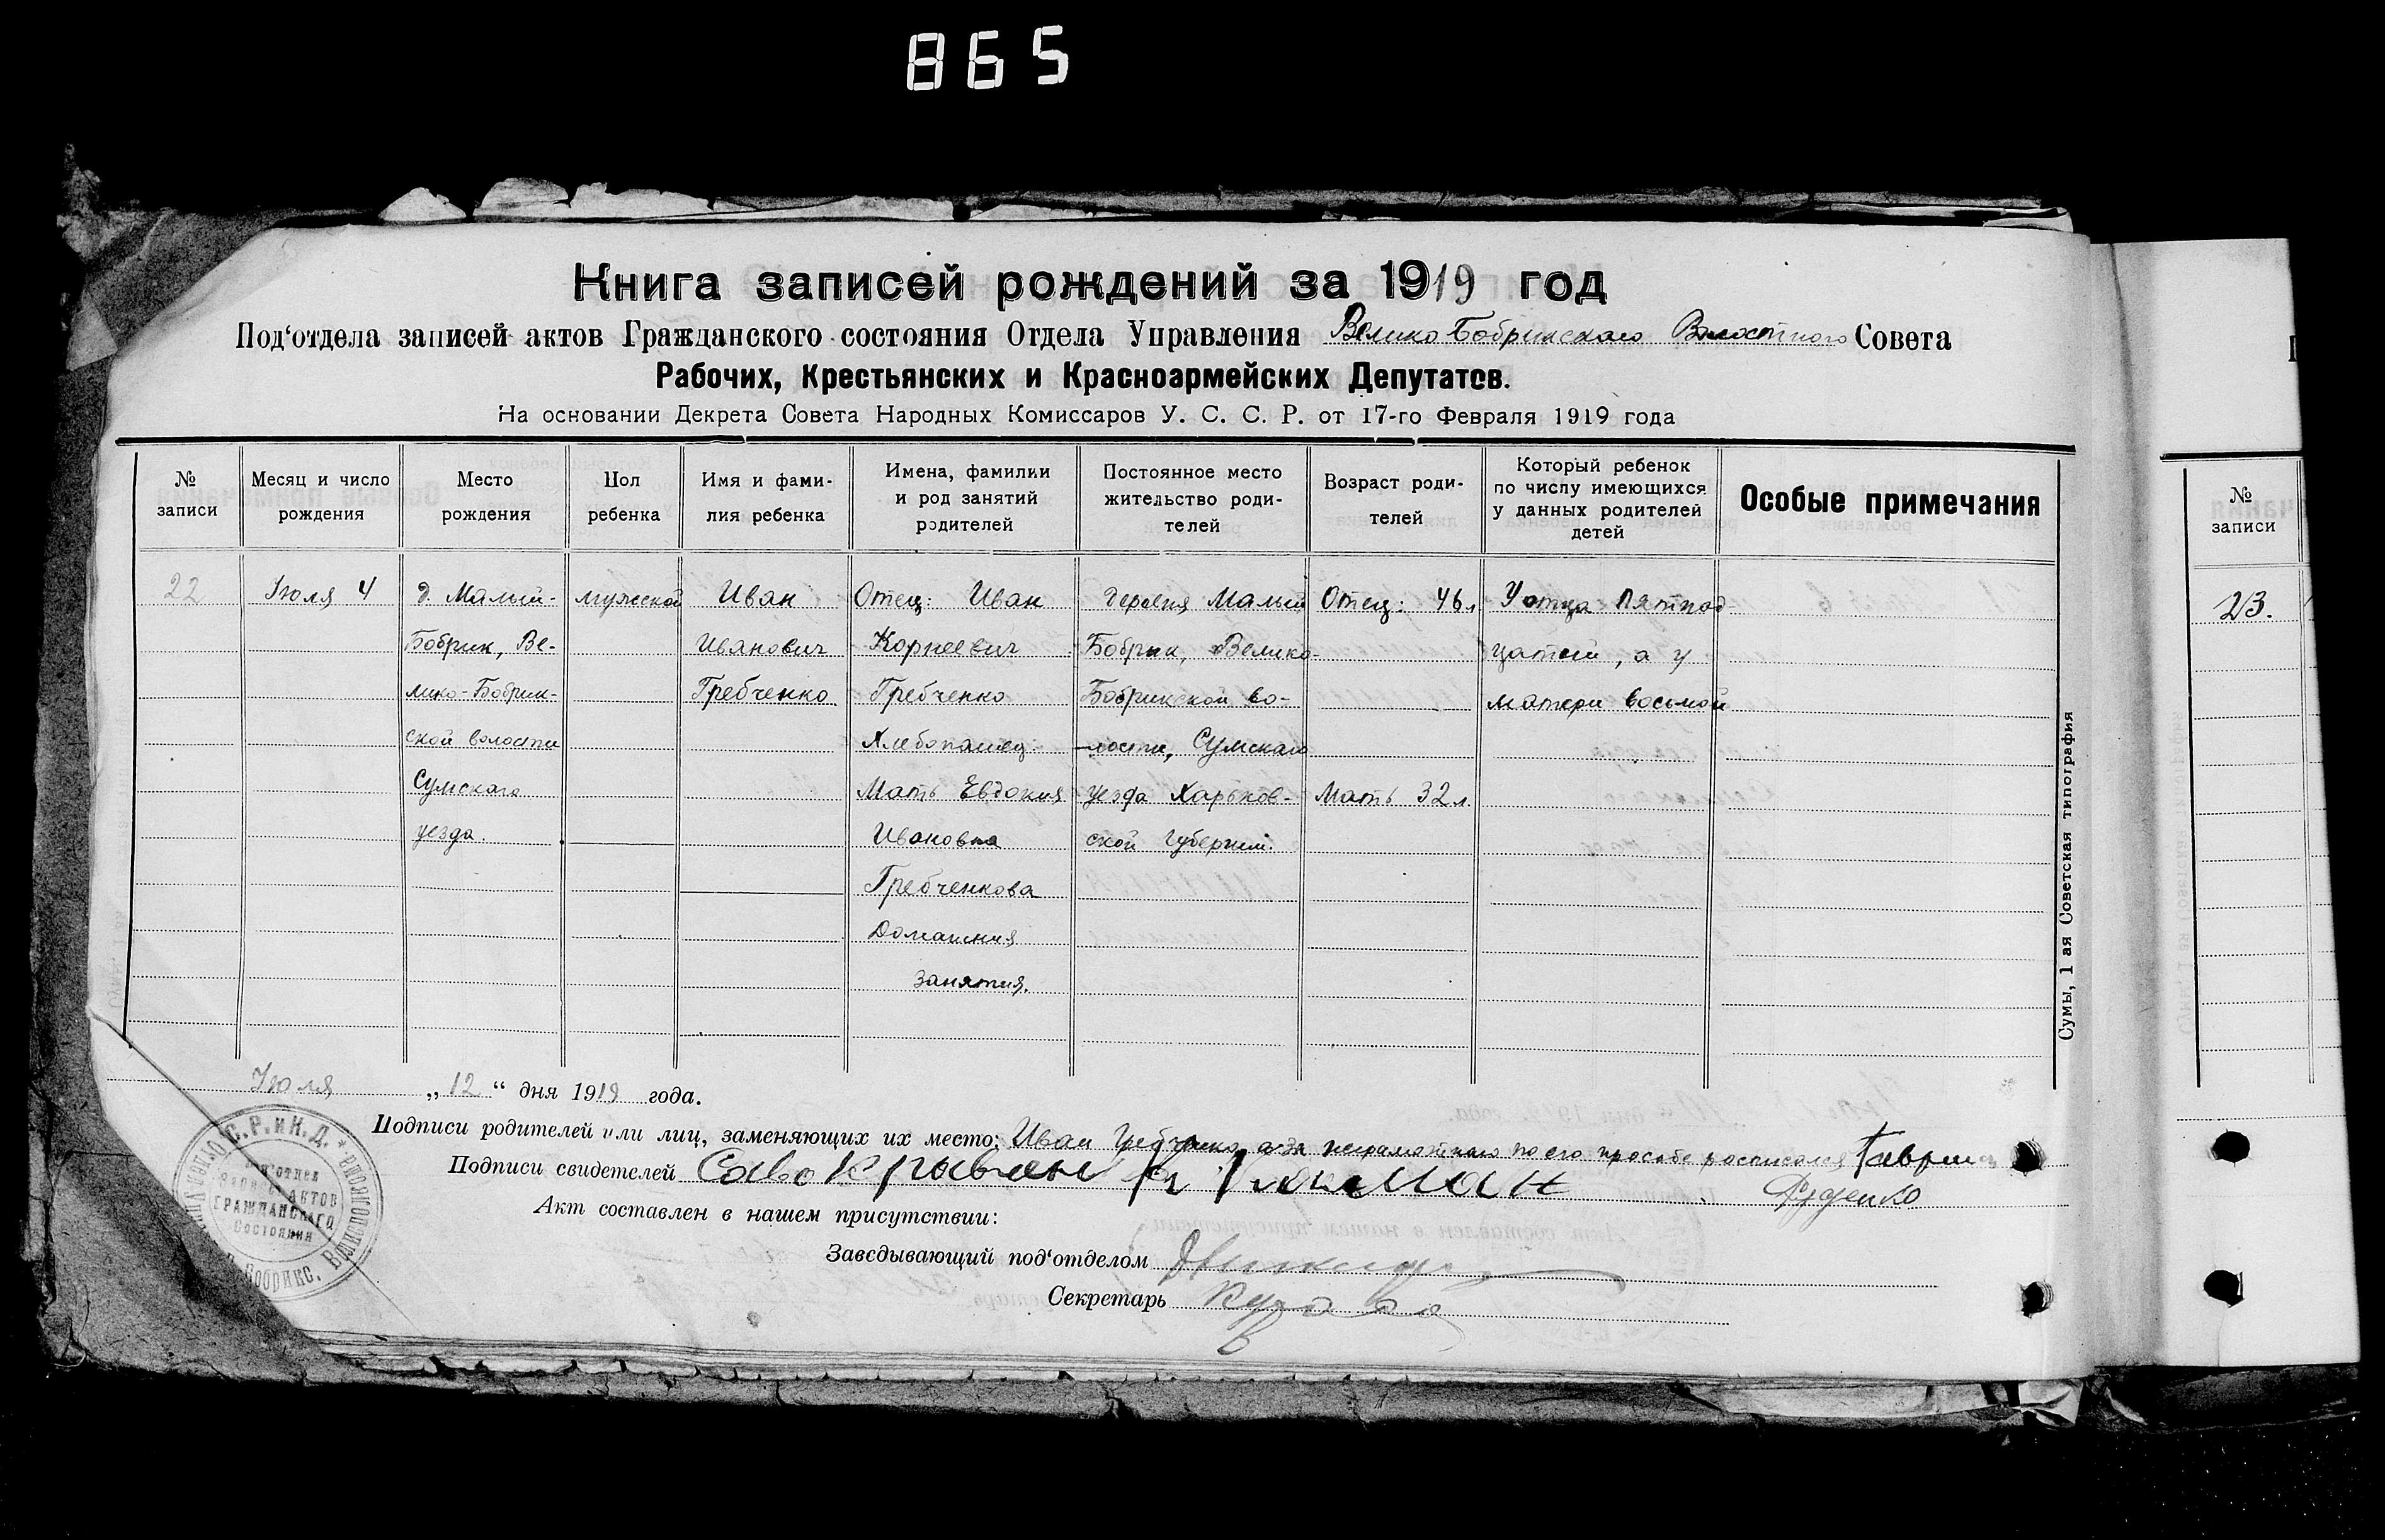 865
Книга записей рождений за 1919 год
Под‘отдела записей актов Гражданского состояния Отдела Управления Велико Бобрикскаго Волостного Совета
Рабочих, Крестьянских и Красноармейских Депутатов.
На основании Декрета Совета Народных Комиссаров У. С. С. Р. от 17-го Февраля 1919 года
№ записи
Месяц и число рождения
Место рождения
Пол ребенка
Имя и фами-
лия ребенка
Имена, фамилии
и род занятий
родителей
Постоянное место
жительство роди-
телей
Возраст роди-
телей
Который ребенок
по числу имеющихся
у данных родителей
детей
Особые примечания
№
записи
22
Июля 4
д. Малый-
Бобрик, Ве-
лико-Бобрик-
ской волости
Сумскаго
уезда.
мужской
Иван
Иванович
Гребченко
Отец: Иван
Корнеевич
Гребченко
Хлебопашец
Мать Евдокия
Ивановна
Гребченкова
Домашния
занятия.
деревня Малый
Бобрик, Велико-
Бобрикской во-
лости, Сумскаго
уезда Харьков-
ской губернии.
Отец: 46 л
Мать 32 л.
У отца пятнад
цатый, а у
матери восьмой
23.
Сумы, 1 ая Советская типография
Июля „12“ дня 1919 года.
Подписи родителей или лиц, заменяющих их место: Иван Гребченко, а за неграмотнаго по его просьбе росписался Гаврил
Руденко
Подписи свидетелей Сава
Акт составлен в нашем присутствии:
Заведывающий под‘отделом
Секретарь
С.Р. и К.Д.
Под‘отдел
Запис. актов
Гражданскаго
Состояния